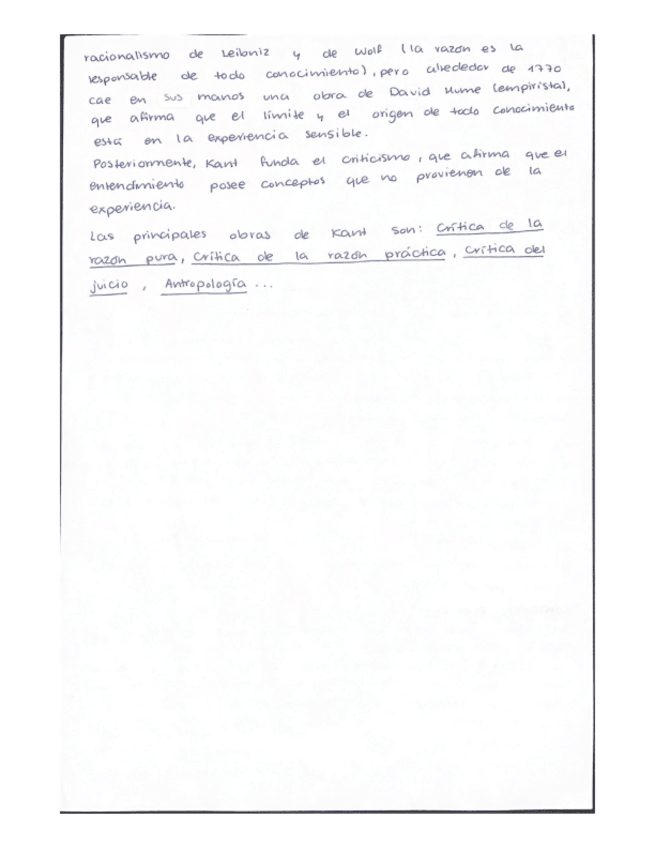 racionalismo de Leibniz y de Wolf (la razón es la
responsable de todo conocimiento), pero alrededor de 1770
cae en sus manos una obra de David Hume (empirista),
que afirma que el límite y el origen de todo conocimiento
está en la experiencia sensible.
Posteriormente, Kant funda el criticismo, que afirma que el
entendimiento posee conceptos que no provienen de la
experiencia.
Las principales obras de Kant son: Crítica de la
razón pura, Crítica de la razón práctica, Crítica del
juicio, Antropología ...